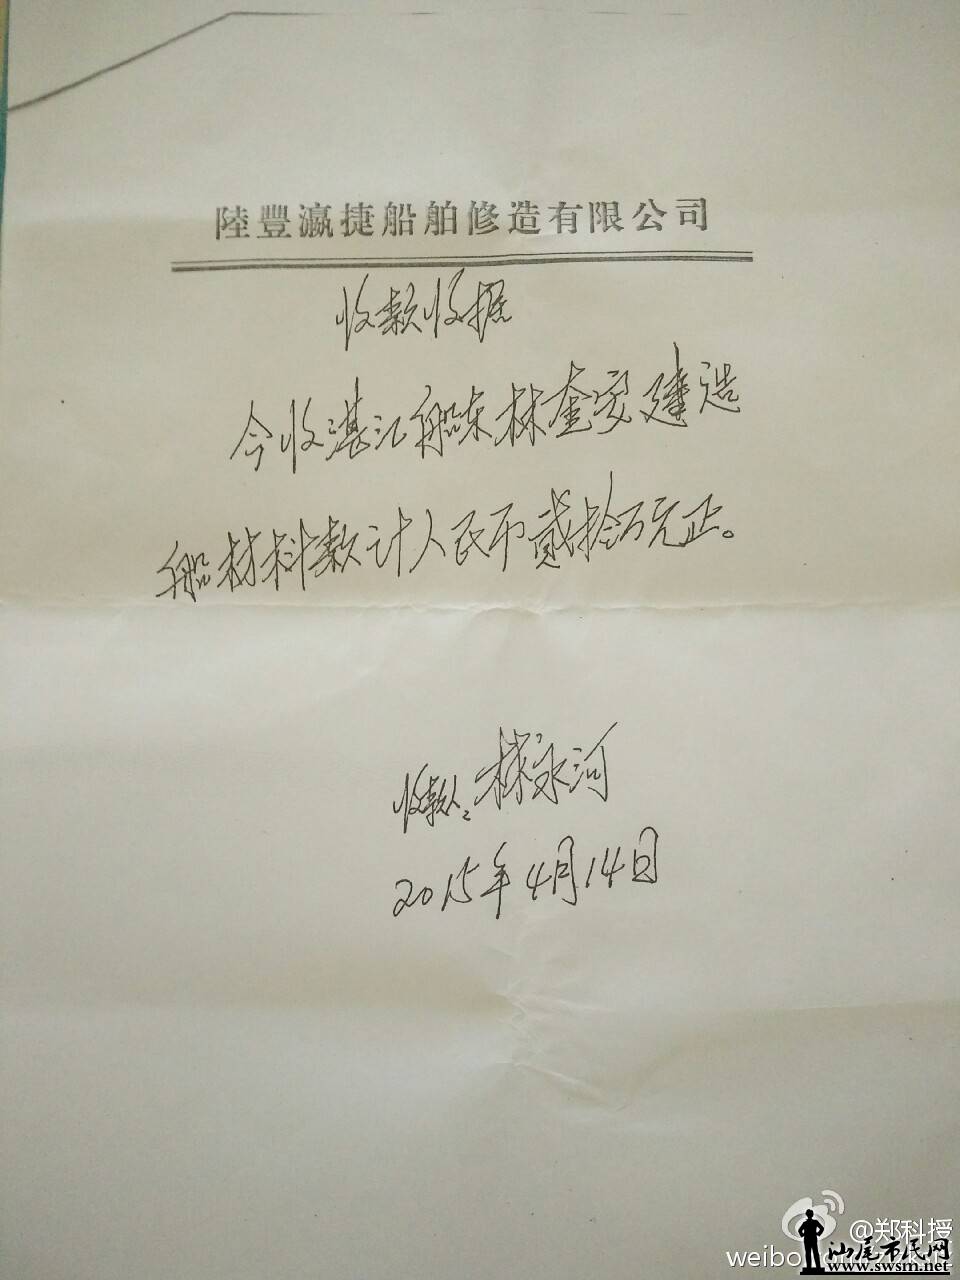 陸豐瀛捷船舶修造有限公司
收款收据
今收湛江船东林奎安建造
船材料款计人民币贰拾万元正。
收款人：林永河
2015年4月14日
@郑科授
weibo.com/
汕尾市民网
www.swsm.net